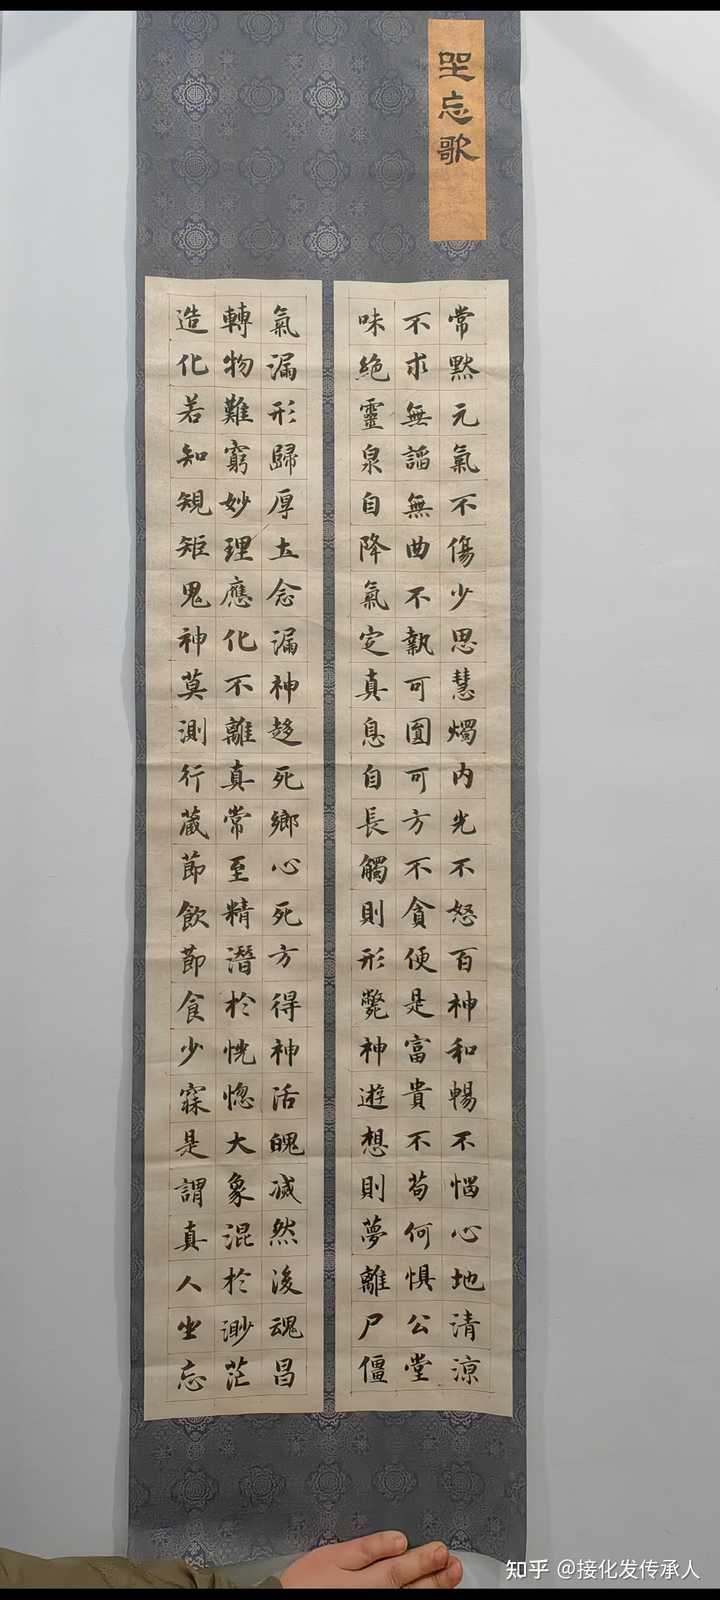 坐忘歌
常默元氣不傷少思慧燭内光不怒百神和暢不惱心地清涼
不求無謟無曲不執可圓可方不貪便是富貴不茍何惧公堂
味絶靈泉自降氣定真息自長觸則形斃神遊想則夢離尸僵
氣漏形歸厚土念漏神趍死鄉心死方得神活魄滅然後魂昌
轉物難窮妙理應化不離真常至精潛於恍惚大象混於渺茫
造化若知規矩鬼神莫測行藏節飲節食少寐是謂真人坐忘
知乎 @接化发传承人